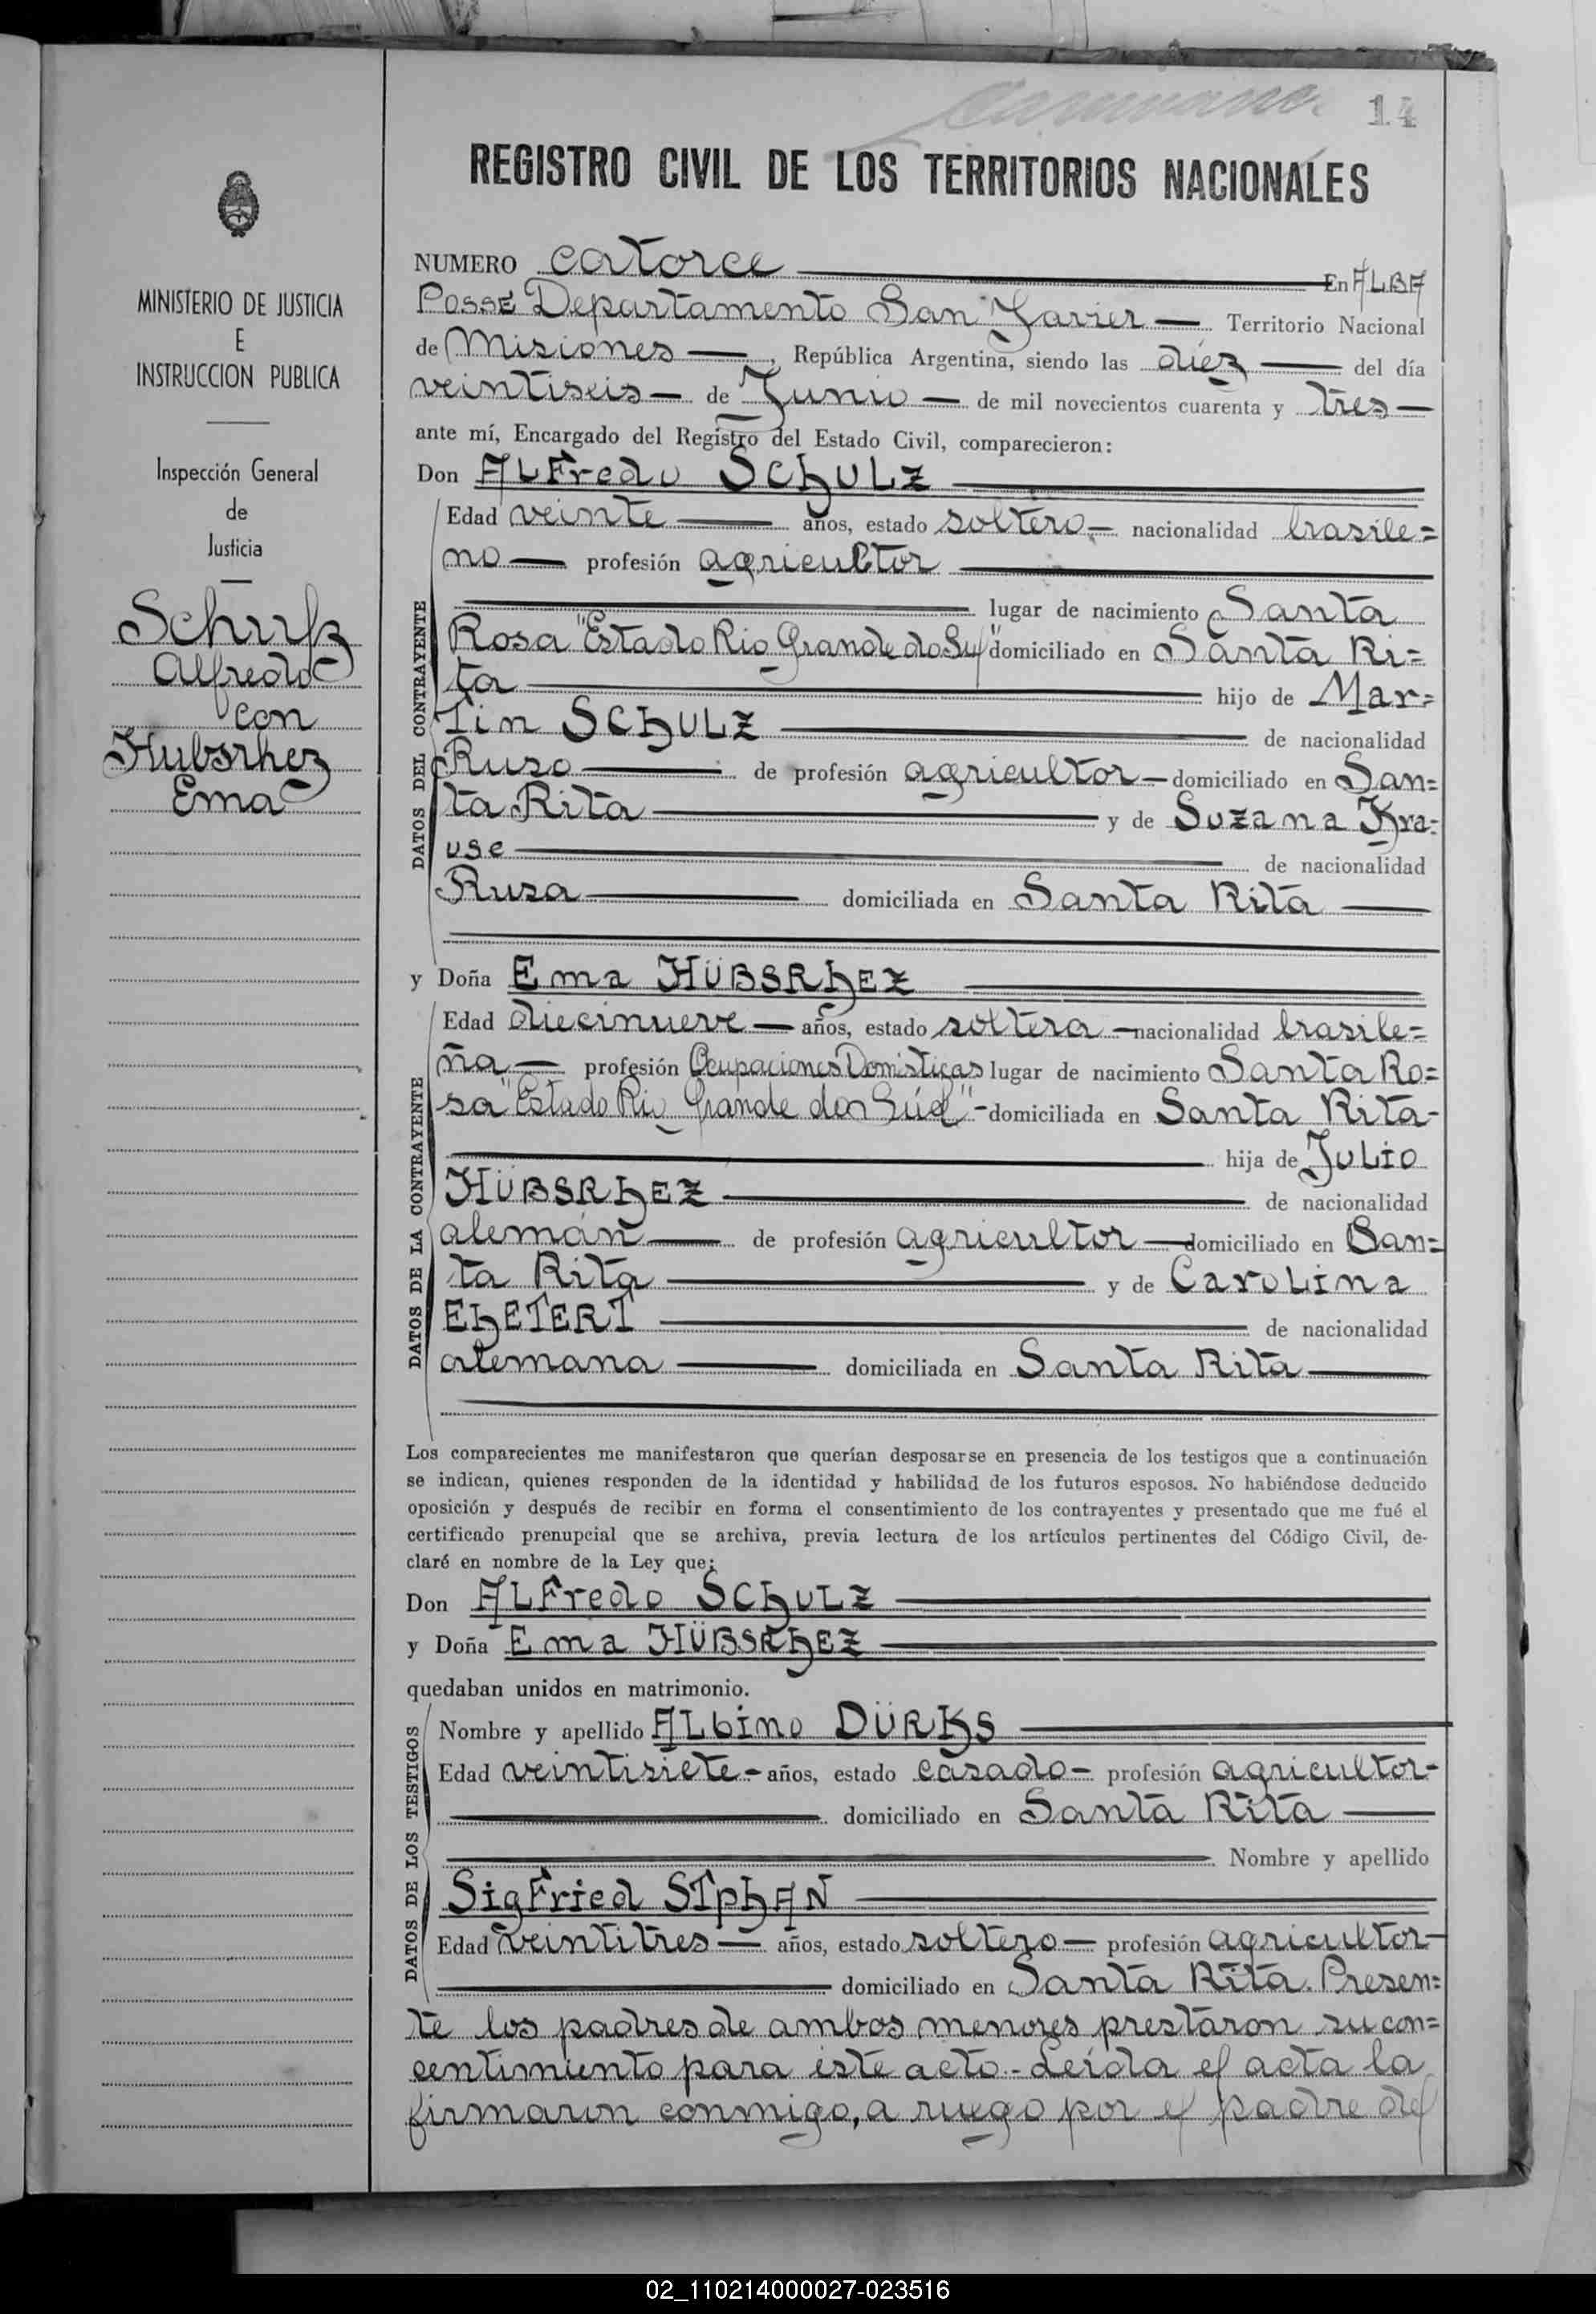 14
REGISTRO CIVIL DE LOS TERRITORIOS NACIONALES
MINISTERIO DE JUSTICIA
E
INSTRUCCION PUBLICA
Inspección General
de
Justicia
Schulz
Alfredo
con
Hubsrhez
Ema
NUMERO catorce En ALBA
POSSE Departamento San Javier Territorio Nacional
de Misiones, República Argentina, siendo las diez del día
veintiseis de Junio de mil novecientos cuarenta y tres
ante mí, Encargado del Registro del Estado Civil, comparecieron:
Don ALFredo SCHULZ
DATOS DEL CONTRAYENTE
Edad veinte años, estado soltero nacionalidad brasile=
no profesión agricultor
lugar de nacimiento Santa
Rosa "Estado Rio Grande do Sul" domiciliado en Santa Ri=
ta hijo de Mar=
tin SCHULZ de nacionalidad
Ruso de profesión agricultor domiciliado en San=
ta Rita y de Suzana Kra=
use de nacionalidad
Rusa domiciliada en Santa Rita
y Doña Ema HÜBSRHEZ
DATOS DE LA CONTRAYENTE
Edad diecinueve años, estado soltera nacionalidad brasile=
ña profesión Ocupaciones Domisticas lugar de nacimiento Santa Ro=
sa "Estado Rio Grande don Súd" domiciliada en Santa Rita
hija de JULIO
HÜBSRHEZ de nacionalidad
alemán de profesión agricultor domiciliado en San=
ta Rita y de CaroLina
EHETERT de nacionalidad
alemana domiciliada en Santa Rita
Los comparecientes me manifestaron que querían desposarse en presencia de los testigos que a continuación
se indican, quienes responden de la identidad y habilidad de los futuros esposos. No habiéndose deducido
oposición y después de recibir en forma el consentimiento de los contrayentes y presentado que me fué el
certificado prenupcial que se archiva, previa lectura de los artículos pertinentes del Código Civil, de-
claré en nombre de la Ley que:
Don ALFredo SCHULZ
y Doña Ema HÜBSRHEZ
quedaban unidos en matrimonio.
DATOS DE LOS TESTIGOS
Nombre y apellido ALbino DÜRKS
Edad veintisiete años, estado casado profesión agricultor
domiciliado en Santa Rita
Nombre y apellido
SigFried STPHAN
Edad veintitres años, estado soltero profesión agricultor
domiciliado en Santa Rita. Presen=
te los padres de ambos menores prestaron su con=
sentimiento para éste acto.- Leída el acta la
firmaron conmigo, a ruego por el padre del
02_110214000027-023516